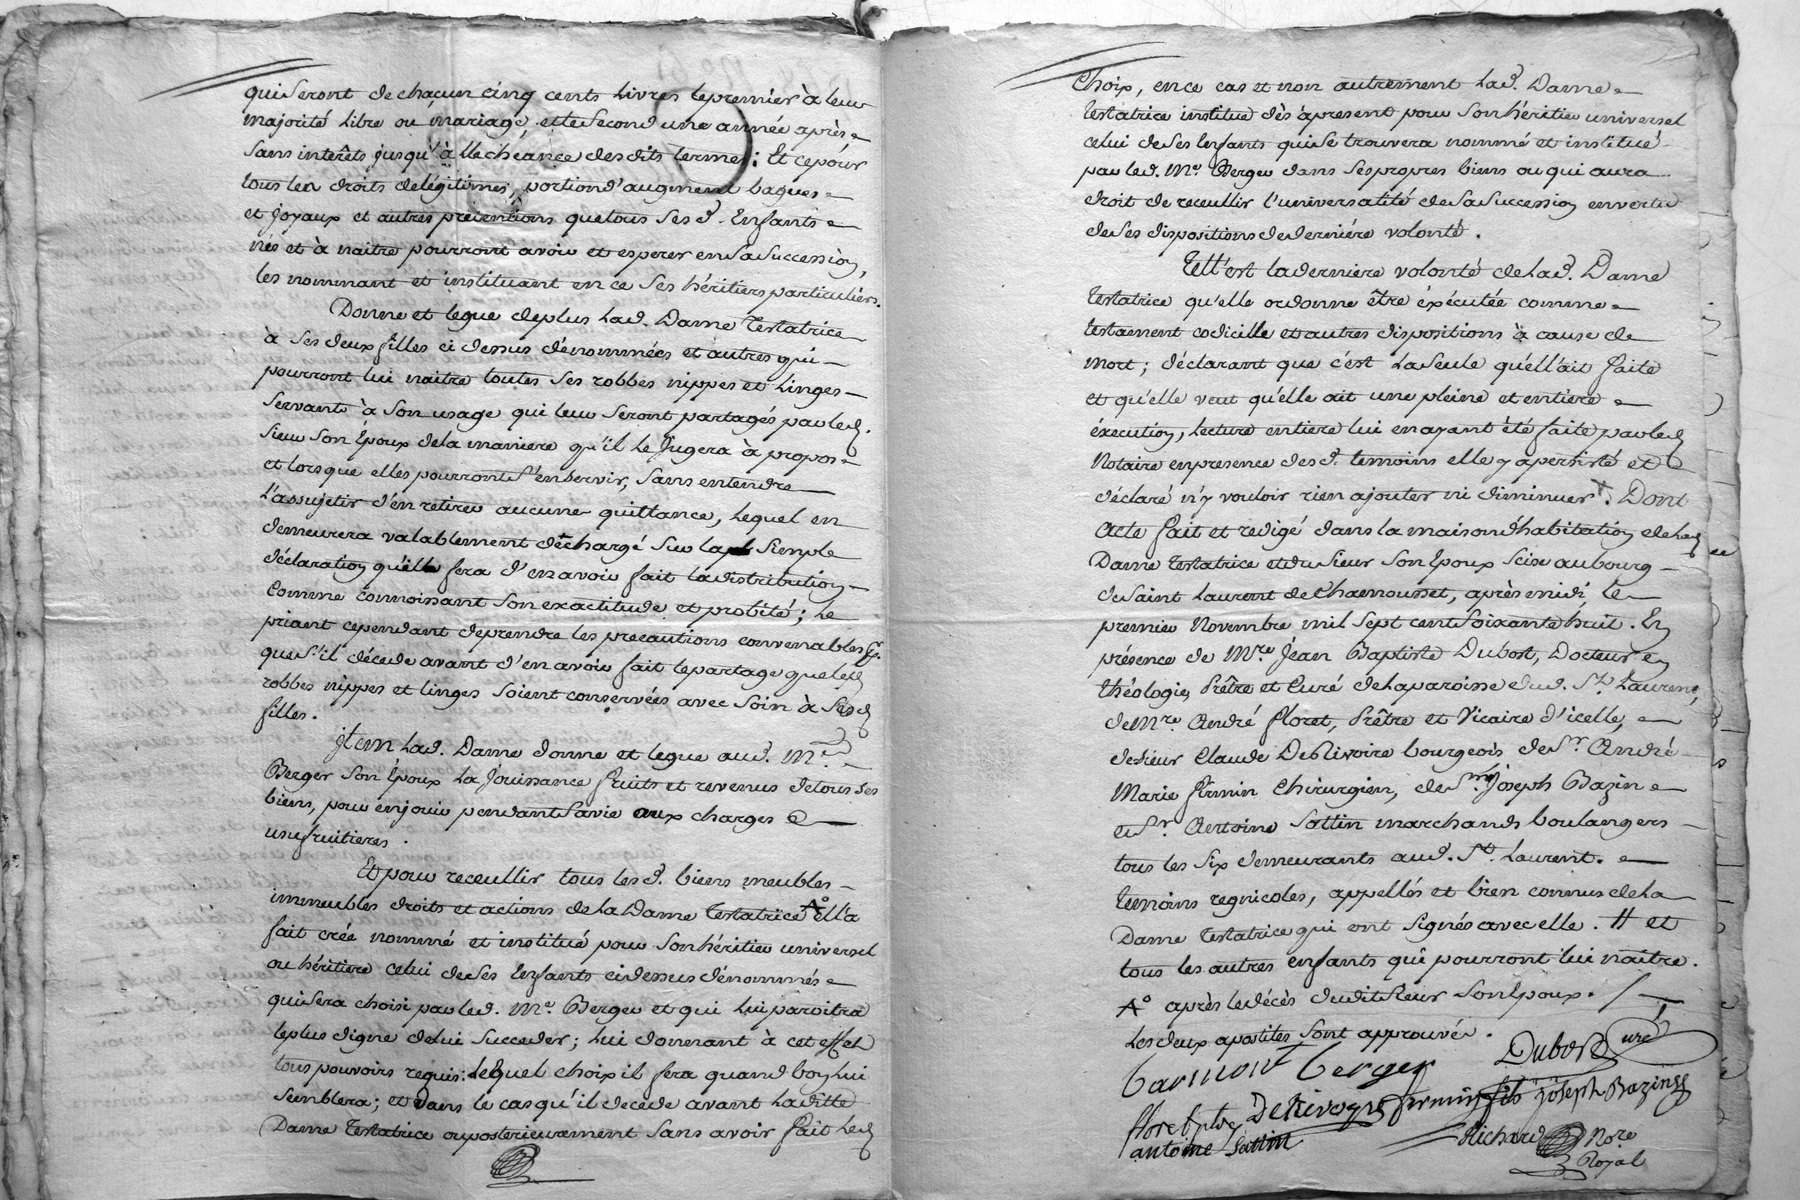 qui seront de chaçun cinq cents livres le premier à leur
majorité libre ou mariage, et le second une année après
sans interêts jusqu'à l'echeance desdits termes; Et ce pour
tous les droits de légitimes, portion d'augment bagues
et joyaux et autres pretentions que tous ses d. Enfants
nés et à naitre pourront avoir et esperer en sa succession,
les nommant et instituant en ce ses héritiers particuliers.
Donne et legue de plus lad. Dame Testatrice
à ses deux filles ci dessus dénommées et autres qui
pourront lui naitre toutes ses robbes nippes et linges
servants à son usage qui leur seront partagés par led.
sieur son Epoux de la maniere qu'il le jugera à propos
et lorsque elles pourront s'en servir, sans entendre
l'assujetir d'en retirer aucune quittance, lequel en
demeurera valablement déchargé sur la simple
déclaration qu'il fera d'en avoir fait la distribution
comme connoissant son exactitude et probité; le
priant cependant de prendre les precautions convenables
que s'il décede avant d'en avoir fait le partage que lesd
robbes nippes et linges soient conservées avec soin à sesd
filles.
Item lad. Dame donne et legue aud. Me.
Berger son Epoux la jouissance fruits et revenus de tous ses
biens, pour en jouir pendant sa vie aux charges
usufruitieres.
Et pour receullir tous les d. biens meubles
immeubles droits et actions de la Dame Testatrice A° ell'a
fait créé nommé et institué pour son héritier universel
ou héritiere celui de ses Enfants ci dessus dénommés
qui sera choisi par led. Me. Berger et qui lui paroitra
le plus digne de lui succeder; lui donnant à cet effet
tous pouvoirs requis: lequel choix il fera quand bon lui
semblera; et dans le cas qu'il decede avant laditte
Dame Testatrice ou posterieurement sans avoir fait led
choix, en ce cas et non autrement lad. Dame
Testatrice institue dès àpresent pour son héritier universel
celui de ses Enfants qui se trouvera nommé et institué
par led. Me. Berger dans ses propres biens ou qui aura
droit de receullir l'universalité de sa succession en vertu
de ses dispositions de derniére volonté.
Tell'est la derniere volonté de lad. Dame
Testatrice qu'elle ordonne être éxécutée comme
testament codicille et autres dispositions à cause de
mort; déclarant que c'est la seule qu'ell'ait faite
et qu'elle veut qu'elle ait une pleine et entiere
éxecution, lecture entiere lui en ayant été faite par led
Notaire en presence desd. temoins elle y a persisté et
déclaré n'y vouloir rien ajouter ni diminuer. Dont
acte fait et redigé dans la maison d'habitation de lad
Dame Testatrice et du sieur son Epoux scise au bourg
de Saint Laurent de Chamousset, après midi, le
premier Novembre mil sept cent soixante huit. En
présence de Mre. Jean Baptiste Dubost, Docteur en
théologie, Prêtre et Curé de la paroisse dud. St. Laurent,
de Mre André Floret, Prêtre et Vicaire d'icelle,
de sieur Claude DeRivoire bourgeois de Sr. André
Marie Firmin Chirurgien, de Sr. Joseph Bazin
et Sr. Antoine Sattin marchands boulangers
tous les six demeurants aud. St. Laurent.
Temoins regnicoles, appellés et bien connus de la
Dame Testatrice qui ont signés avec elle. # et
tous les autres enfants qui pourront lui naitre.
A° après le décès dudit sieur son Epoux.
Les deux apostiles sont approuvés.
Dubost curé
Berger
DeRivoyre Firmin fils joseph Bazin
antoine Sattin
Richard Nore
Royal